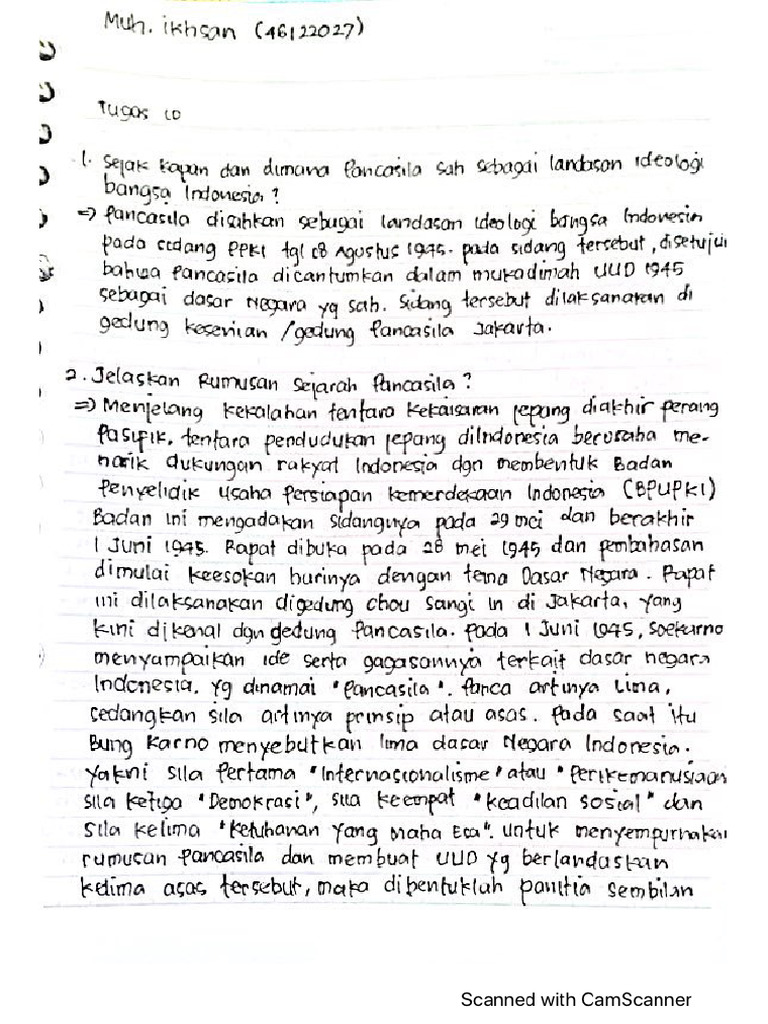 Muh. ikhsan (46122027)
Tugas 10
1. Sejak kapan dan dimana Pancasila sah sebagai landasan ideologi
bangsa Indonesia?
=> Pancasila disahkan sebagai landasan ideologi bangsa Indonesia
pada sidang PPKI tgl 18 Agustus 1945. pada sidang tersebut, disetujui
bahwa Pancasila dicantumkan dalam mukadimah UUD 1945
sebagai dasar Negara yg sah. Sidang tersebut dilaksanakan di
gedung kesenian /gedung Pancasila Jakarta.
2. Jelaskan Rumusan Sejarah Pancasila?
=> Menjelang kekalahan tentara kekaisaran jepang diakhir perang
Pasifik, tentara pendudukan jepang diIndonesia berusaha me-
narik dukungan rakyat Indonesia dgn membentuk Badan
Penyelidik usaha Persiapan kemerdekaan Indonesia (BPUPKI)
Badan ini mengadakan sidangnya pada 29 mei dan berakhir
1 Juni 1945. Rapat dibuka pada 28 mei 1945 dan pembahasan
dimulai keesokan harinya dengan tema Dasar Negara. Rapat
ini dilaksanakan digedung chou sangi in di Jakarta, yang
kini dikenal dgn gedung Pancasila. pada 1 Juni 1945, Soekarno
menyampaikan ide serta gagasannya terkait dasar negara
Indonesia, yg dinamai "Pancasila". Panca artinya Lima,
sedangkan sila artinya prinsip atau asas. Pada saat itu
Bung Karno menyebutkan lima dasar Negara Indonesia.
yakni sila Pertama "Internasionalisme" atau "Perikemanusiaan
sila ketiga "Demokrasi", sila keempat "keadilan sosial" dan
sila kelima "ketuhanan Yang Maha Esa". untuk menyempurnakan
rumusan Pancasila dan membuat UUD yg berlandaskan
kelima asas tersebut, maka dibentuklah panitia sembilan
Scanned with CamScanner